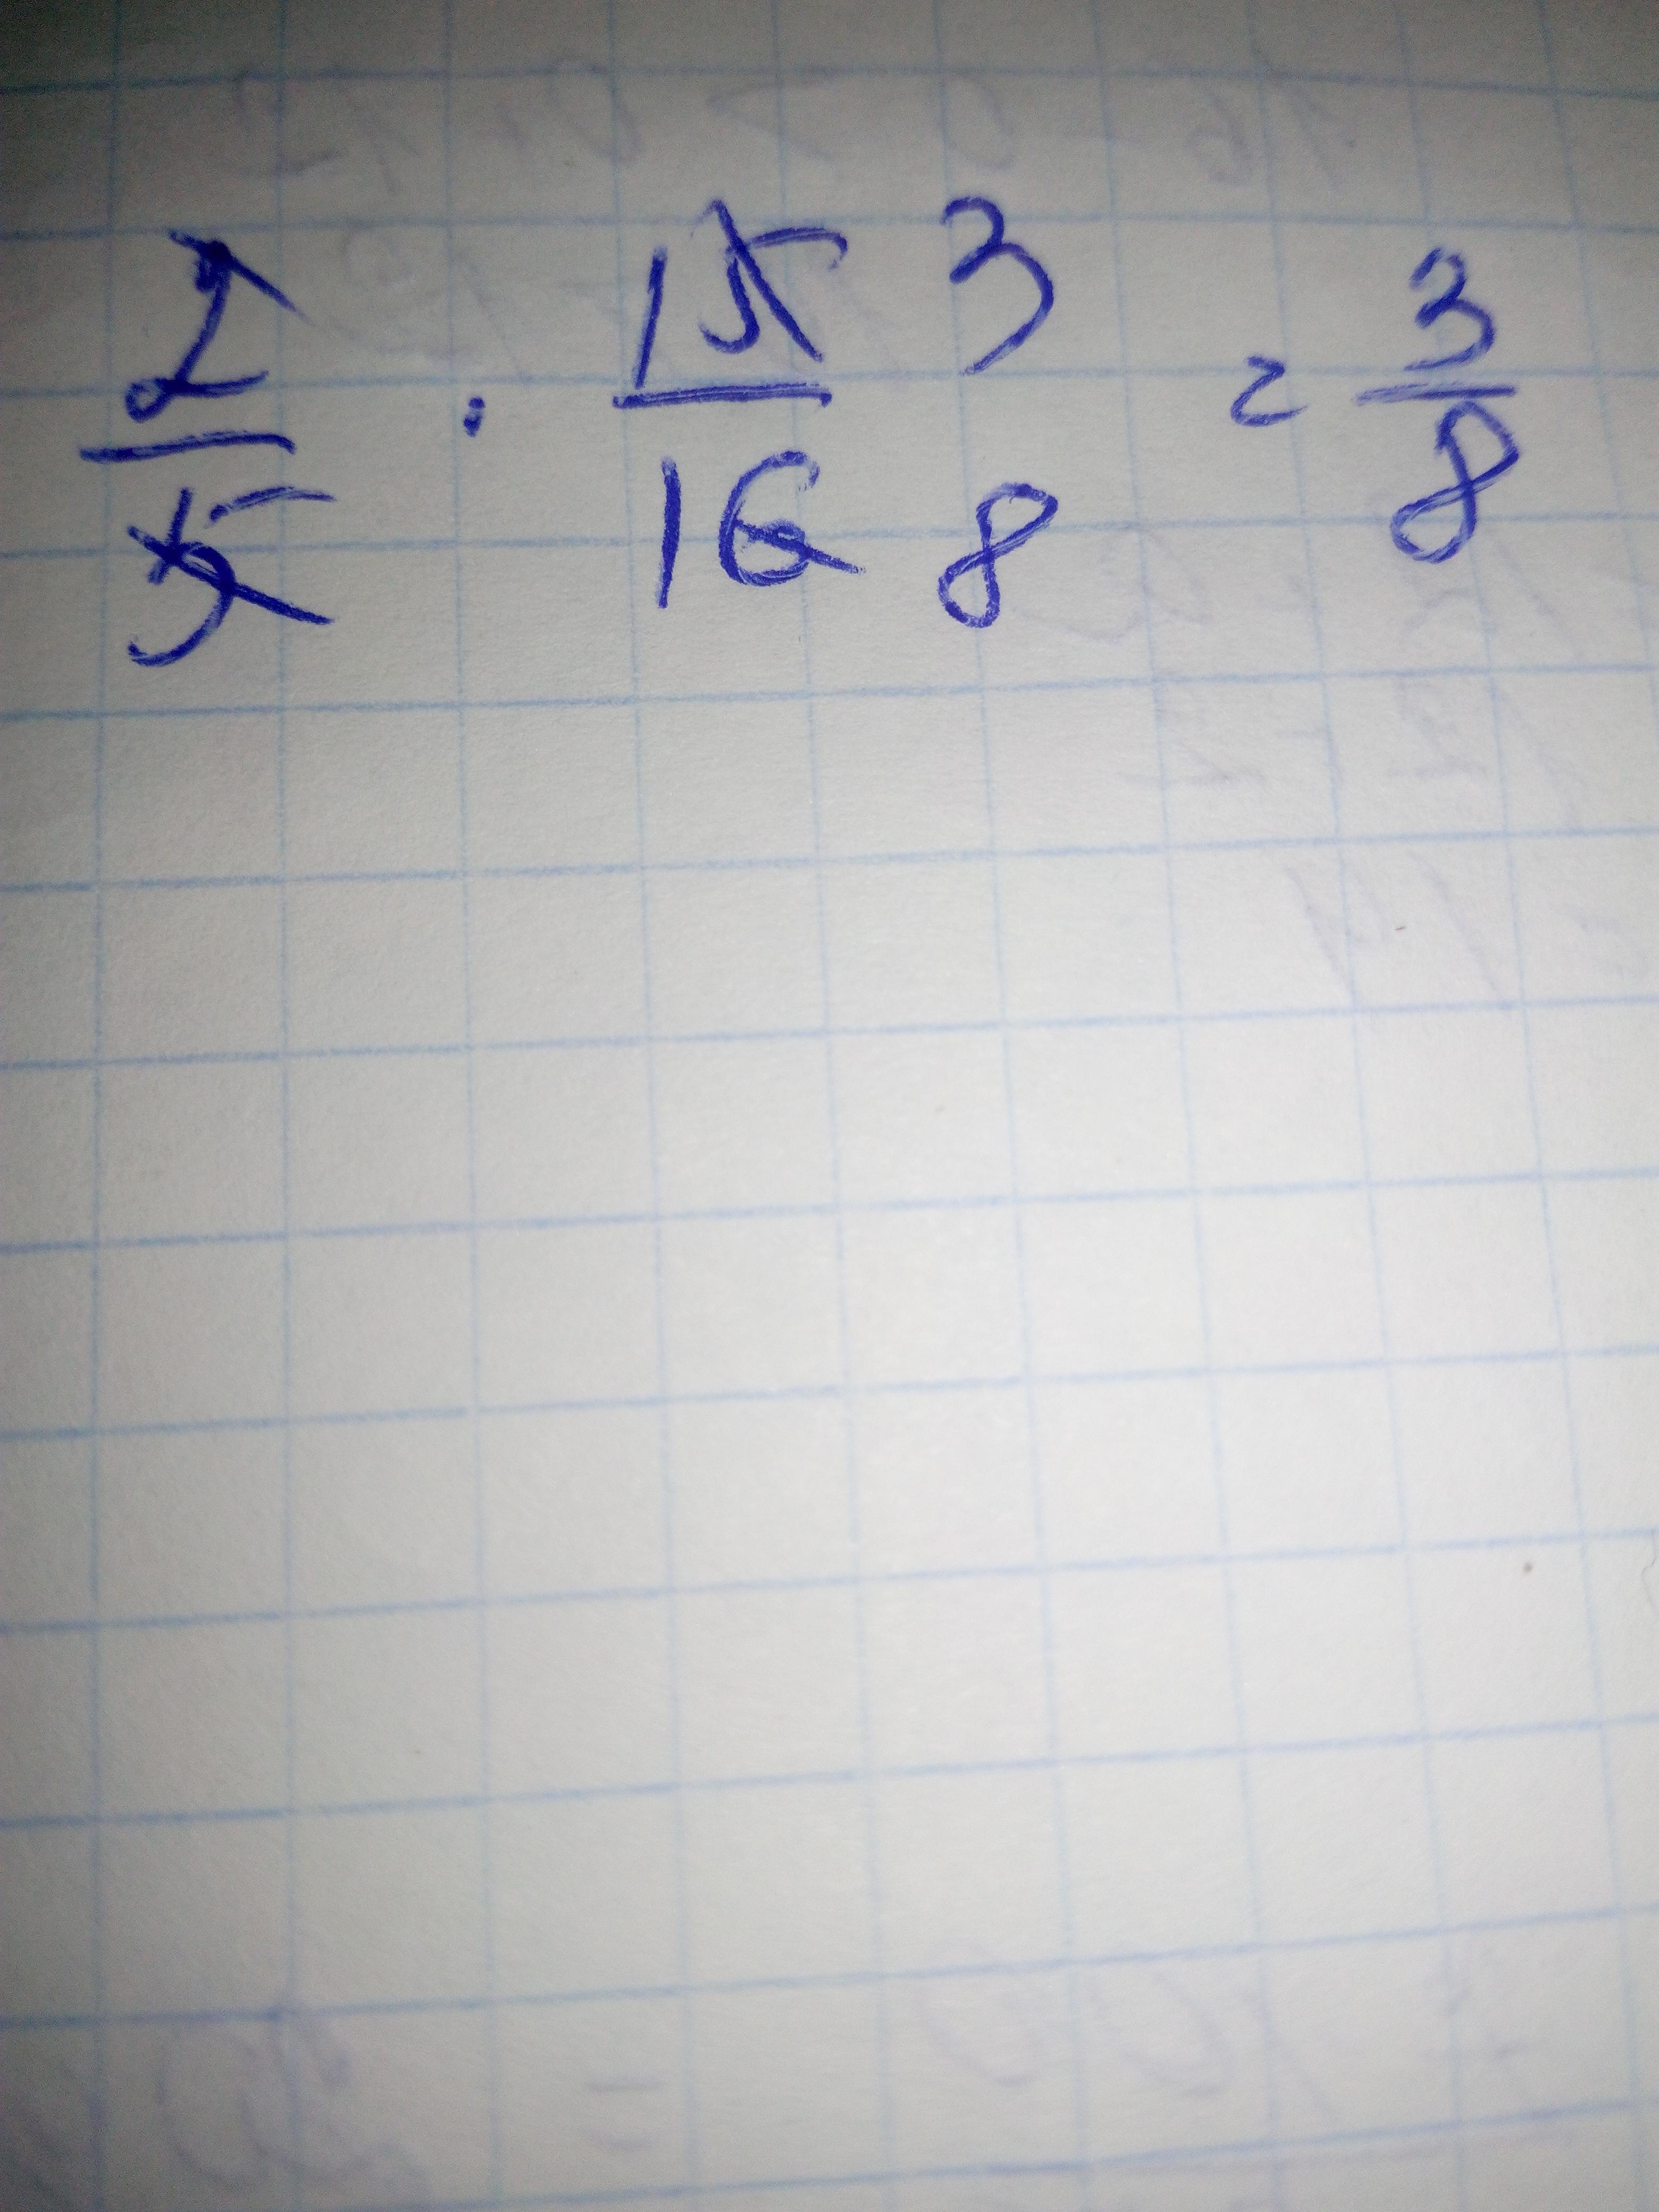 2/5 · 15/16 3/8 = 3/8